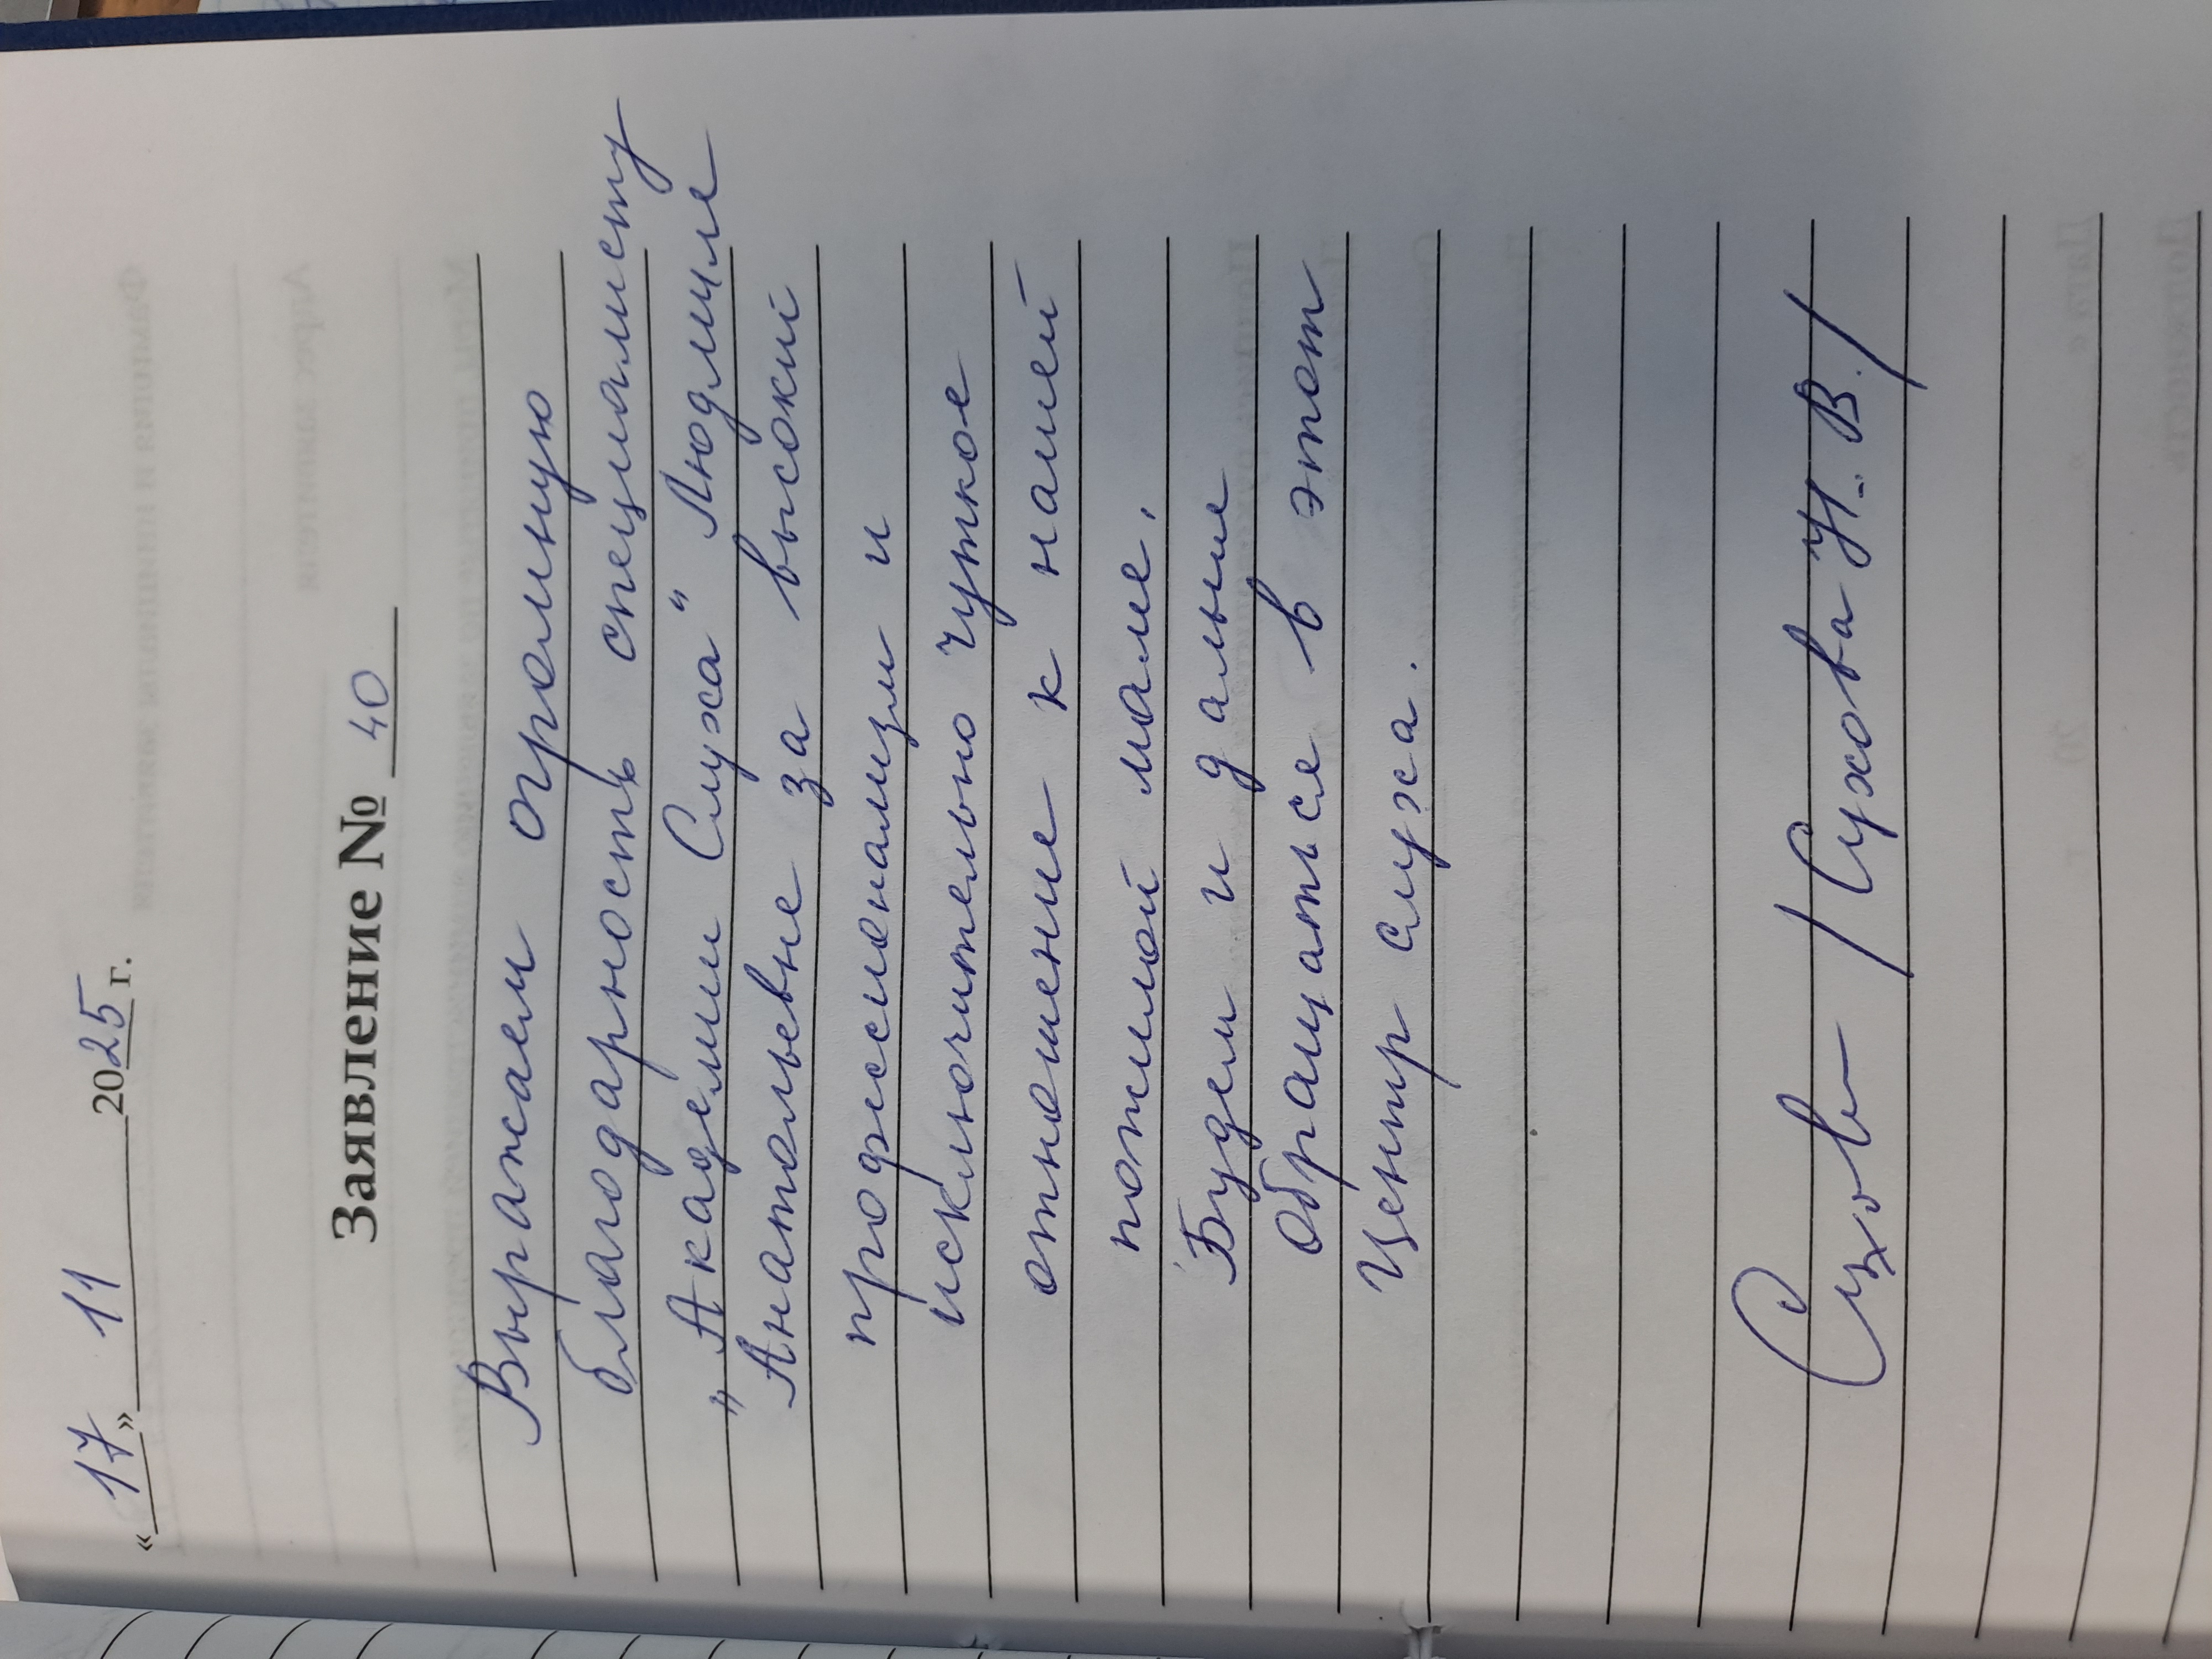 «17» 11 2025 г.
Заявление № 40
Выражаем огромную
благодарность специалисту
"Академии Слуха" Людмиле
Анатольевне за высокий
профессионализм и
исключительно чуткое
отношение к нашей
пожилой маме.
Будем и дальше
обращаться в этот
Центр слуха.
/Сухова Н.В./